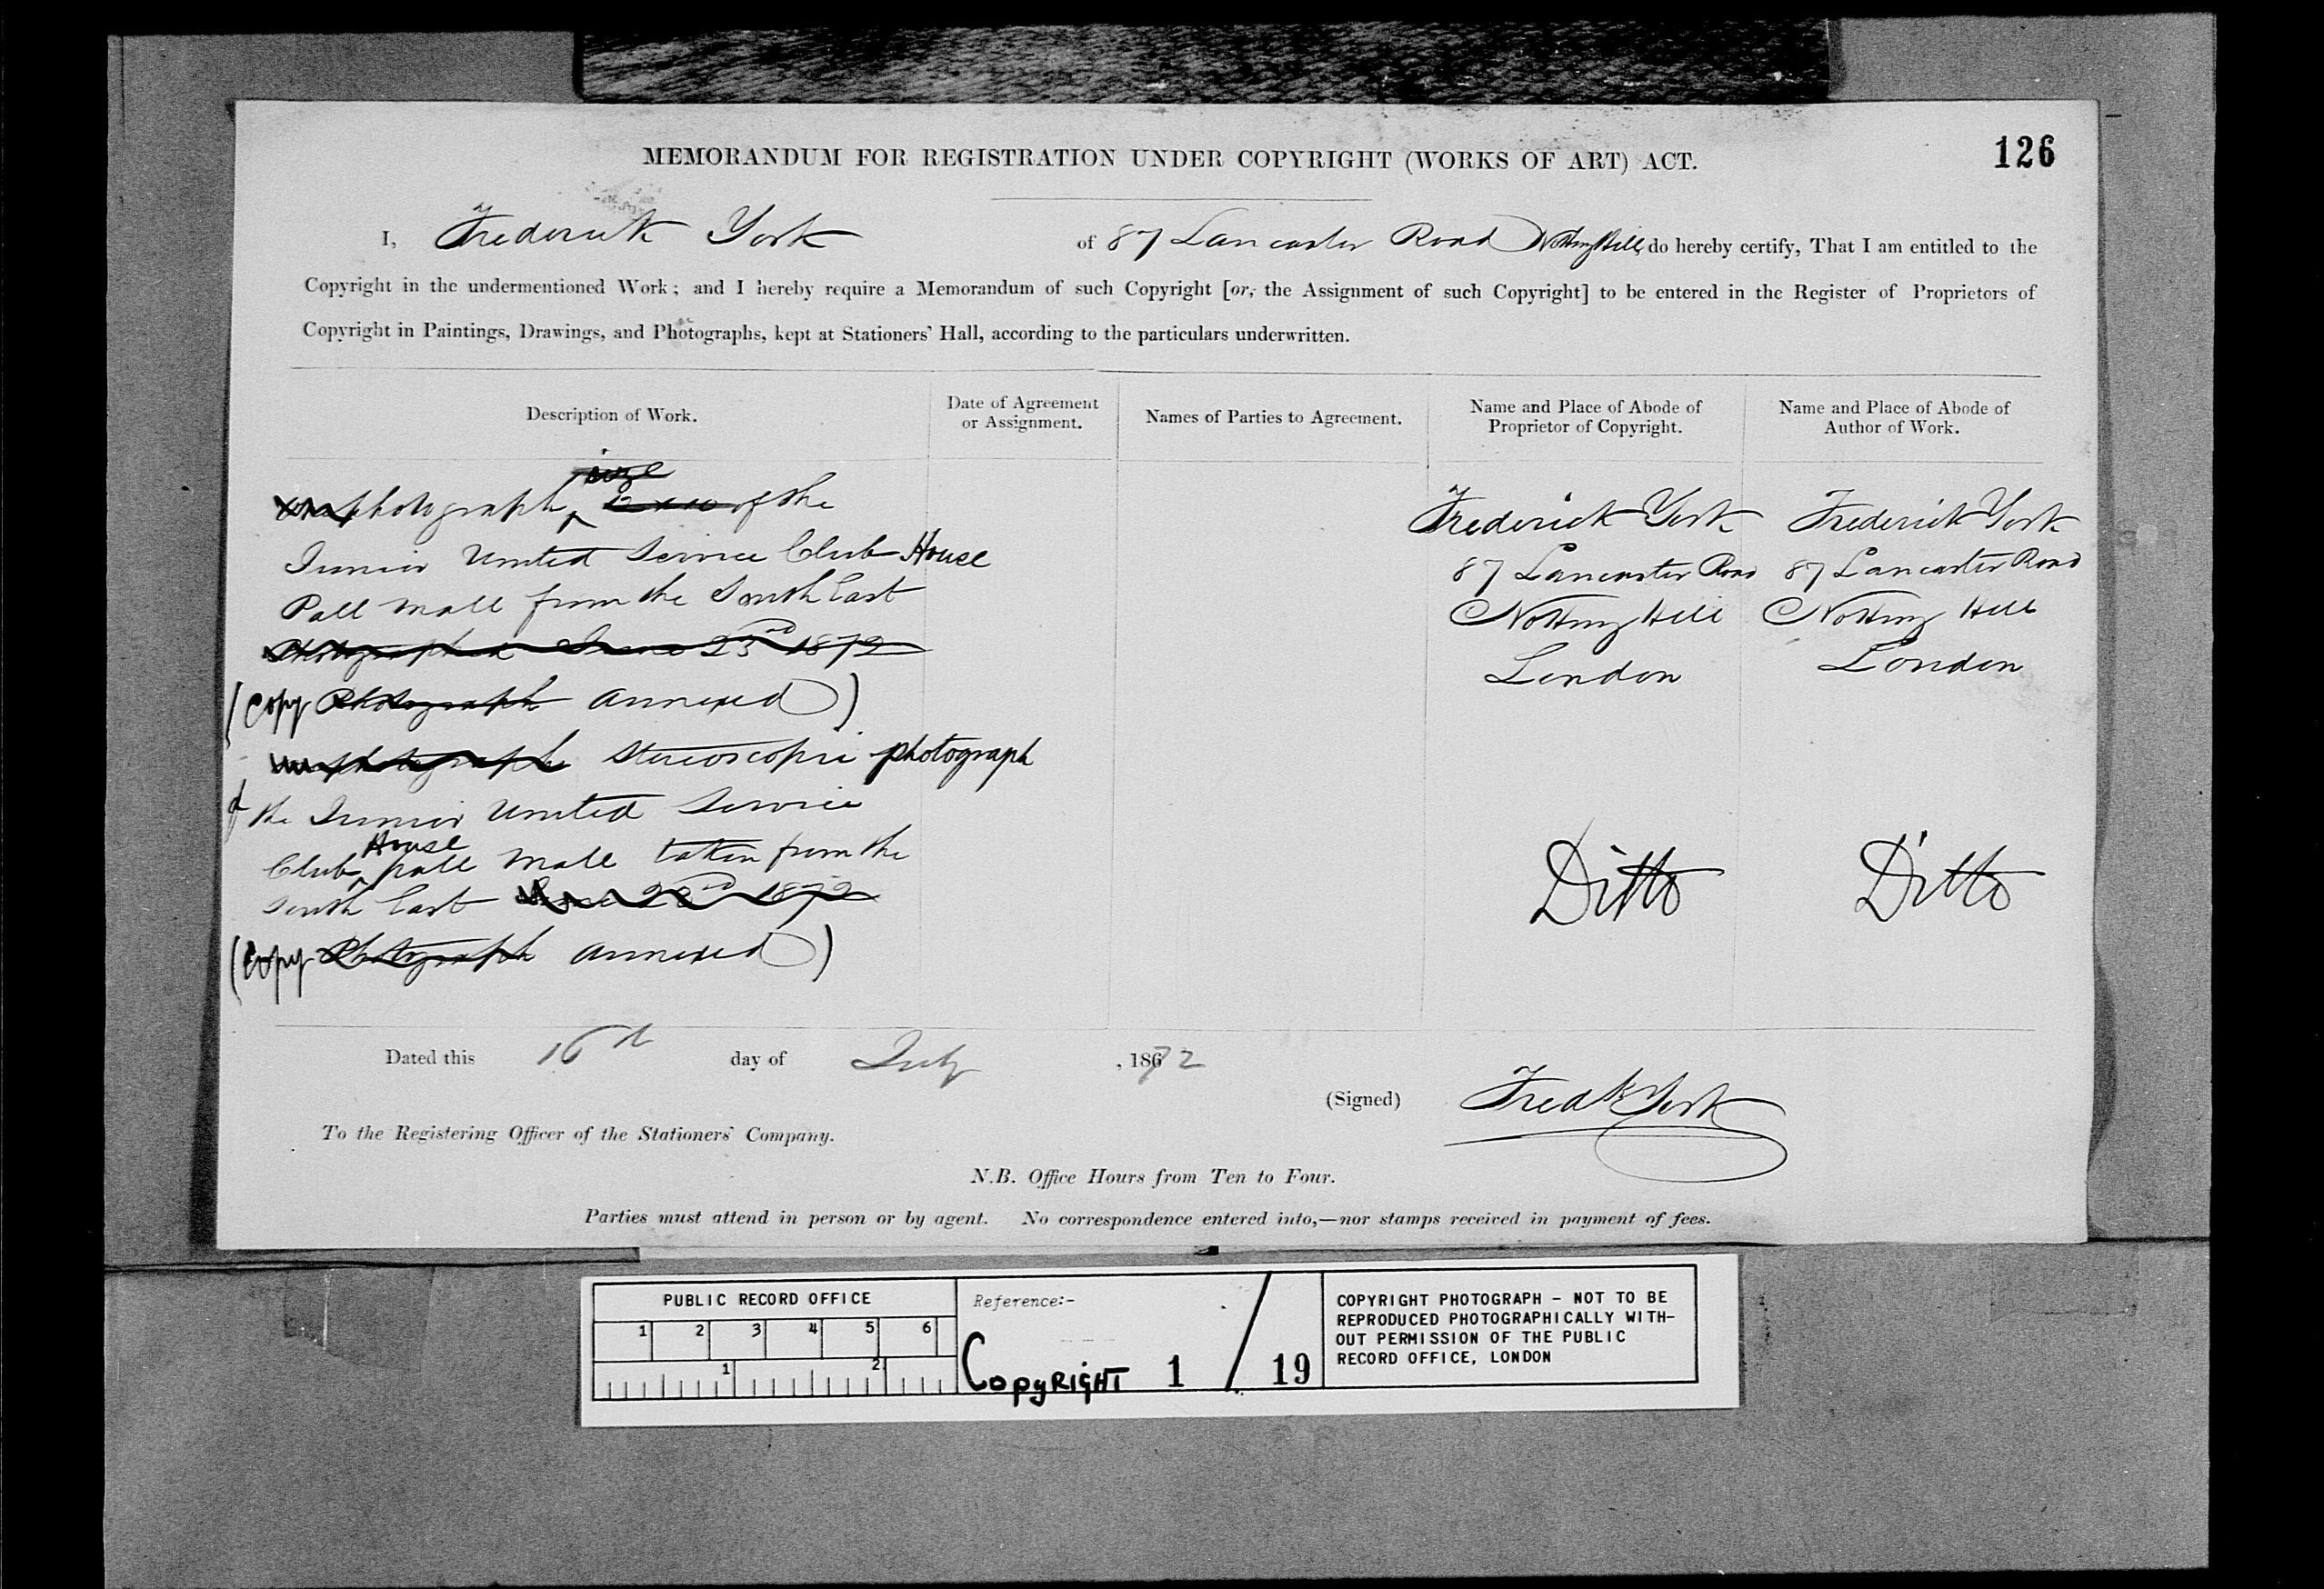 126
MEMORANDUM FOR REGISTRATION UNDER COPYRIGHT (WORKS OF ART) ACT.
I, Frederick York of 87 Lancaster Road Notting Hill, do hereby certify, That I am entitled to the
Copyright in the undermentioned Work; and I hereby require a Memorandum of such Copyright [or, the Assignment of such Copyright] to be entered in the Register of Proprietors of
Copyright in Paintings, Drawings, and Photographs, kept at Stationers' Hall, according to the particulars underwritten.
Description of Work.
Date of Agreement
or Assignment.
Names of Parties to Agreement.
Name and Place of Abode of
Proprietor of Copyright.
Name and Place of Abode of
Author of Work.
size
photograph 12 x 10 of the
Junior United Service Club House
Pall Mall from the South East
Photographed June 23rd 1872
(Copy Photograph annexed)
photograph Stereoscopic photograph
of the Junior United Service
House
Club Pall Mall taken from the
South East June 23rd 1872
(Copy Photograph annexed)
Frederick York
87 Lancaster Road
Notting Hill
London
Ditto
Frederick York
87 Lancaster Road
Notting Hill
London
Ditto
Dated this 16th day of July, 1872
(Signed) Fredk York
To the Registering Officer of the Stationers' Company.
N.B. Office Hours from Ten to Four.
Parties must attend in person or by agent. No correspondence entered into,—nor stamps received in payment of fees.
PUBLIC RECORD OFFICE
1 2 3 4 5 6
1 2
Reference:-
COPYRIGHT 1 / 19
COPYRIGHT PHOTOGRAPH - NOT TO BE
REPRODUCED PHOTOGRAPHICALLY WITH-
OUT PERMISSION OF THE PUBLIC
RECORD OFFICE, LONDON